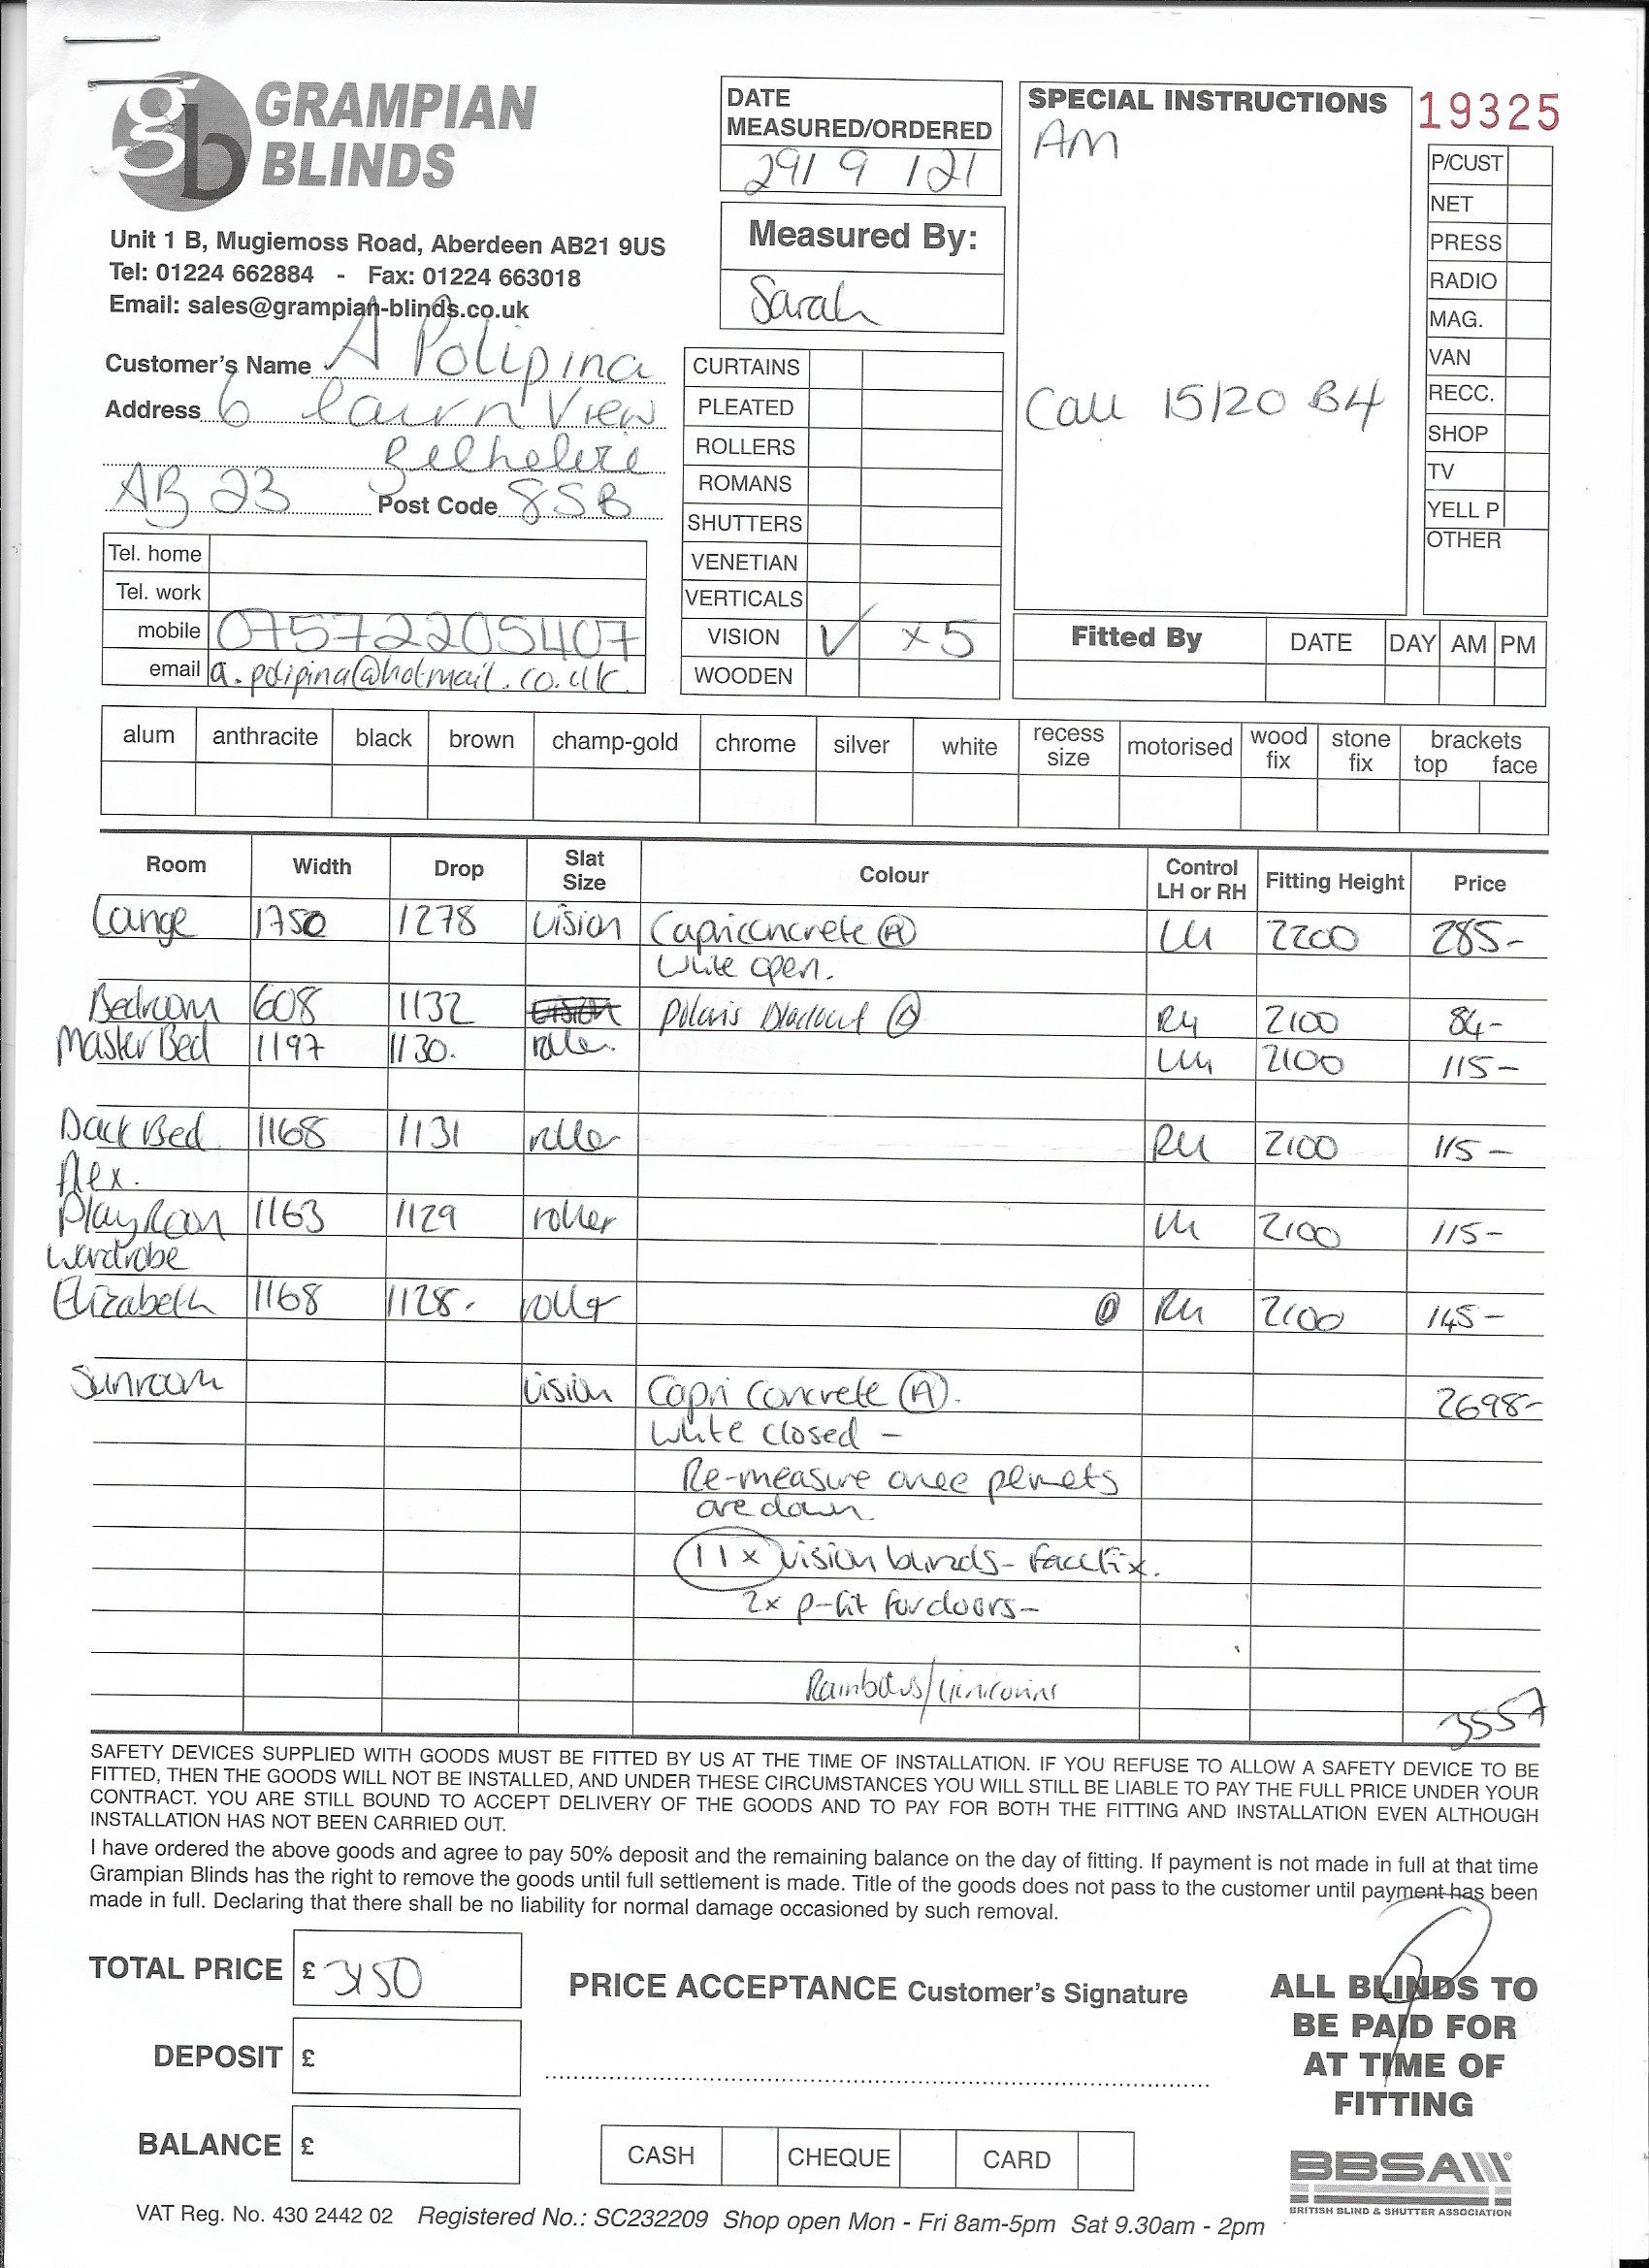 gb GRAMPIAN
BLINDS
Unit 1 B, Mugiemoss Road, Aberdeen AB21 9US
Tel: 01224 662884 - Fax: 01224 663018
Email: sales@grampian-blinds.co.uk
Customer's Name A Polipina
Address 6 Cairn View
Belhelvie
AB23 Post Code 8SB
Tel. home
Tel. work
mobile 075722205407
email a.polipina@hotmail.co.uk.
DATE
MEASURED/ORDERED
29/9/21
Measured By:
Sarah
CURTAINS
PLEATED
ROLLERS
ROMANS
SHUTTERS
VENETIAN
VERTICALS
VISION ✓ x5
WOODEN
SPECIAL INSTRUCTIONS
AM
Call 15/20 B4
19325
P/CUST
NET
PRESS
RADIO
MAG.
VAN
RECC.
SHOP
TV
YELL P
OTHER
Fitted By DATE DAY AM PM
alum anthracite black brown champ-gold chrome silver white recess size motorised wood fix stone fix brackets top face
Room Width Drop Slat Size Colour Control LH or RH Fitting Height Price
Lounge 1750 1278 vision Capri Concrete (A) LH 2200 285-
White open.
Bedroom 608 1132 vision Polaris Blackout RH 2100 84-
Master Bed 1197 1130. roller. LH 2100 115-
Back Bed 1168 1131 roller RH 2100 115-
Alex.
Playroom 1163 1129 roller LH 2100 115-
wardrobe
Elizabeth 1168 1128. roller RH 2100 145-
Sunroom vision Capri Concrete (A). 2698-
White closed -
Re-measure once pelmets
are down.
11x vision blinds - face fix.
2x p-fit for doors -
Rainbows/Unicorns
3557
SAFETY DEVICES SUPPLIED WITH GOODS MUST BE FITTED BY US AT THE TIME OF INSTALLATION. IF YOU REFUSE TO ALLOW A SAFETY DEVICE TO BE
FITTED, THEN THE GOODS WILL NOT BE INSTALLED, AND UNDER THESE CIRCUMSTANCES YOU WILL STILL BE LIABLE TO PAY THE FULL PRICE UNDER YOUR
CONTRACT. YOU ARE STILL BOUND TO ACCEPT DELIVERY OF THE GOODS AND TO PAY FOR BOTH THE FITTING AND INSTALLATION EVEN ALTHOUGH
INSTALLATION HAS NOT BEEN CARRIED OUT.
I have ordered the above goods and agree to pay 50% deposit and the remaining balance on the day of fitting. If payment is not made in full at that time
Grampian Blinds has the right to remove the goods until full settlement is made. Title of the goods does not pass to the customer until payment has been
made in full. Declaring that there shall be no liability for normal damage occasioned by such removal.
TOTAL PRICE £ 3150
DEPOSIT £
BALANCE £
PRICE ACCEPTANCE Customer's Signature
CASH CHEQUE CARD
ALL BLINDS TO
BE PAID FOR
AT TIME OF
FITTING
BBSA
BRITISH BLIND & SHUTTER ASSOCIATION
VAT Reg. No. 430 2442 02 Registered No.: SC232209 Shop open Mon - Fri 8am-5pm Sat 9.30am - 2pm